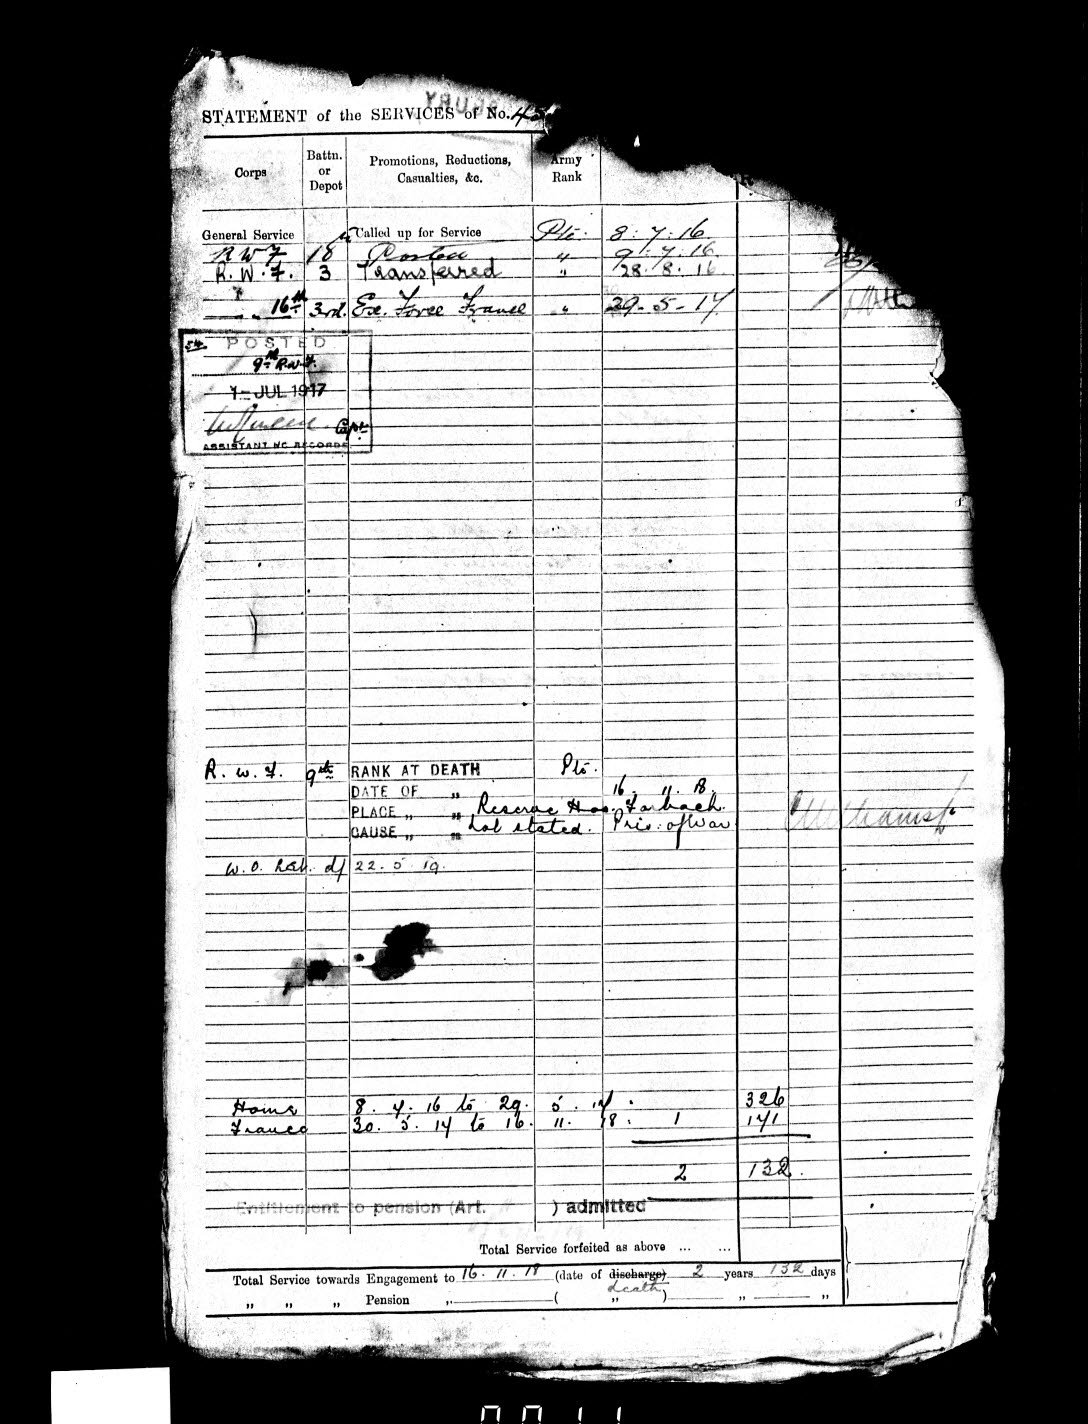 STATEMENT of the SERVICES of No.
Corps
Battn. or Depot
Promotions, Reductions, Casualties, &c.
Army Rank
General Service Called up for Service Pte. 8.7.16
R W F 18th Posted " 9.7.16
R.W.F. 3 Transferred " 28.8.16
" 16th 3rd. Ex. Force France " 29-5-17
54 POSTED
9th R.W.F.
1-JUL 1917
Capt.
ASSISTANT I/C RECORDS
R.W.F. 9th RANK AT DEATH Pte.
DATE OF " 16. 11. 18.
PLACE " " Reserve Hos. Forbach.
CAUSE " " not stated. Pris. of War
W.O. List. df 22.5.19.
Home 8. 7. 16 to 29. 5. 17. 326
France 30. 5. 17 to 16. 11. 18. 1 171
2 132.
Entitlement to pension (Art. ) admitted
Total Service forfeited as above ... ...
Total Service towards Engagement to 16.11.18 (date of discharge) 2 years 132 days
death
" " " Pension " ( " ) " "
0011